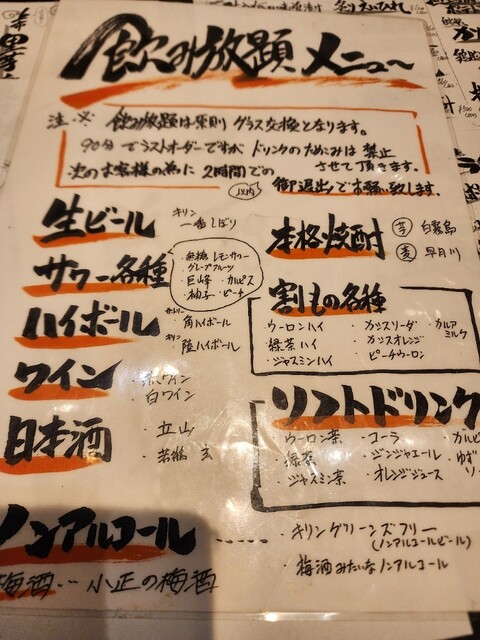 飲み放題メニュー
注・※ 飲み放題は原則 グラス交換となります。
90分でラストオーダーですが ドリンクのためこみは 禁止
させて頂きます。
次のお客様の為に 2時間での
以内
御退出でお願い致します。
生ビール
キリン
一番しぼり
サワー各種
・無糖レモンサワー
・グレープフルーツ
・巨峰 ・カルピス
・柚子 ・ピーチ
ハイボール
サントリー
・角ハイボール
キリン
・陸ハイボール
ワイン
・赤ワイン
・白ワイン
日本酒
・立山
・若鶴 玄
本格焼酎
芋 白霧島
麦 早月川
割もの各種
・ウーロンハイ ・カシスソーダ ・カルアミルク
・緑茶ハイ ・カシスオレンジ
・ジャスミンハイ ・ピーチウーロン
ソフトドリンク
・ウーロン茶 ・コーラ ・カルピ
・緑茶 ・ジンジャエール ・ゆず
・ジャスミン茶 ・オレンジジュース ソー
ノンアルコール
・キリングリーンズフリー
(ノンアルコールビール)
・梅酒みたいなノンアルコール
梅酒…小正の梅酒